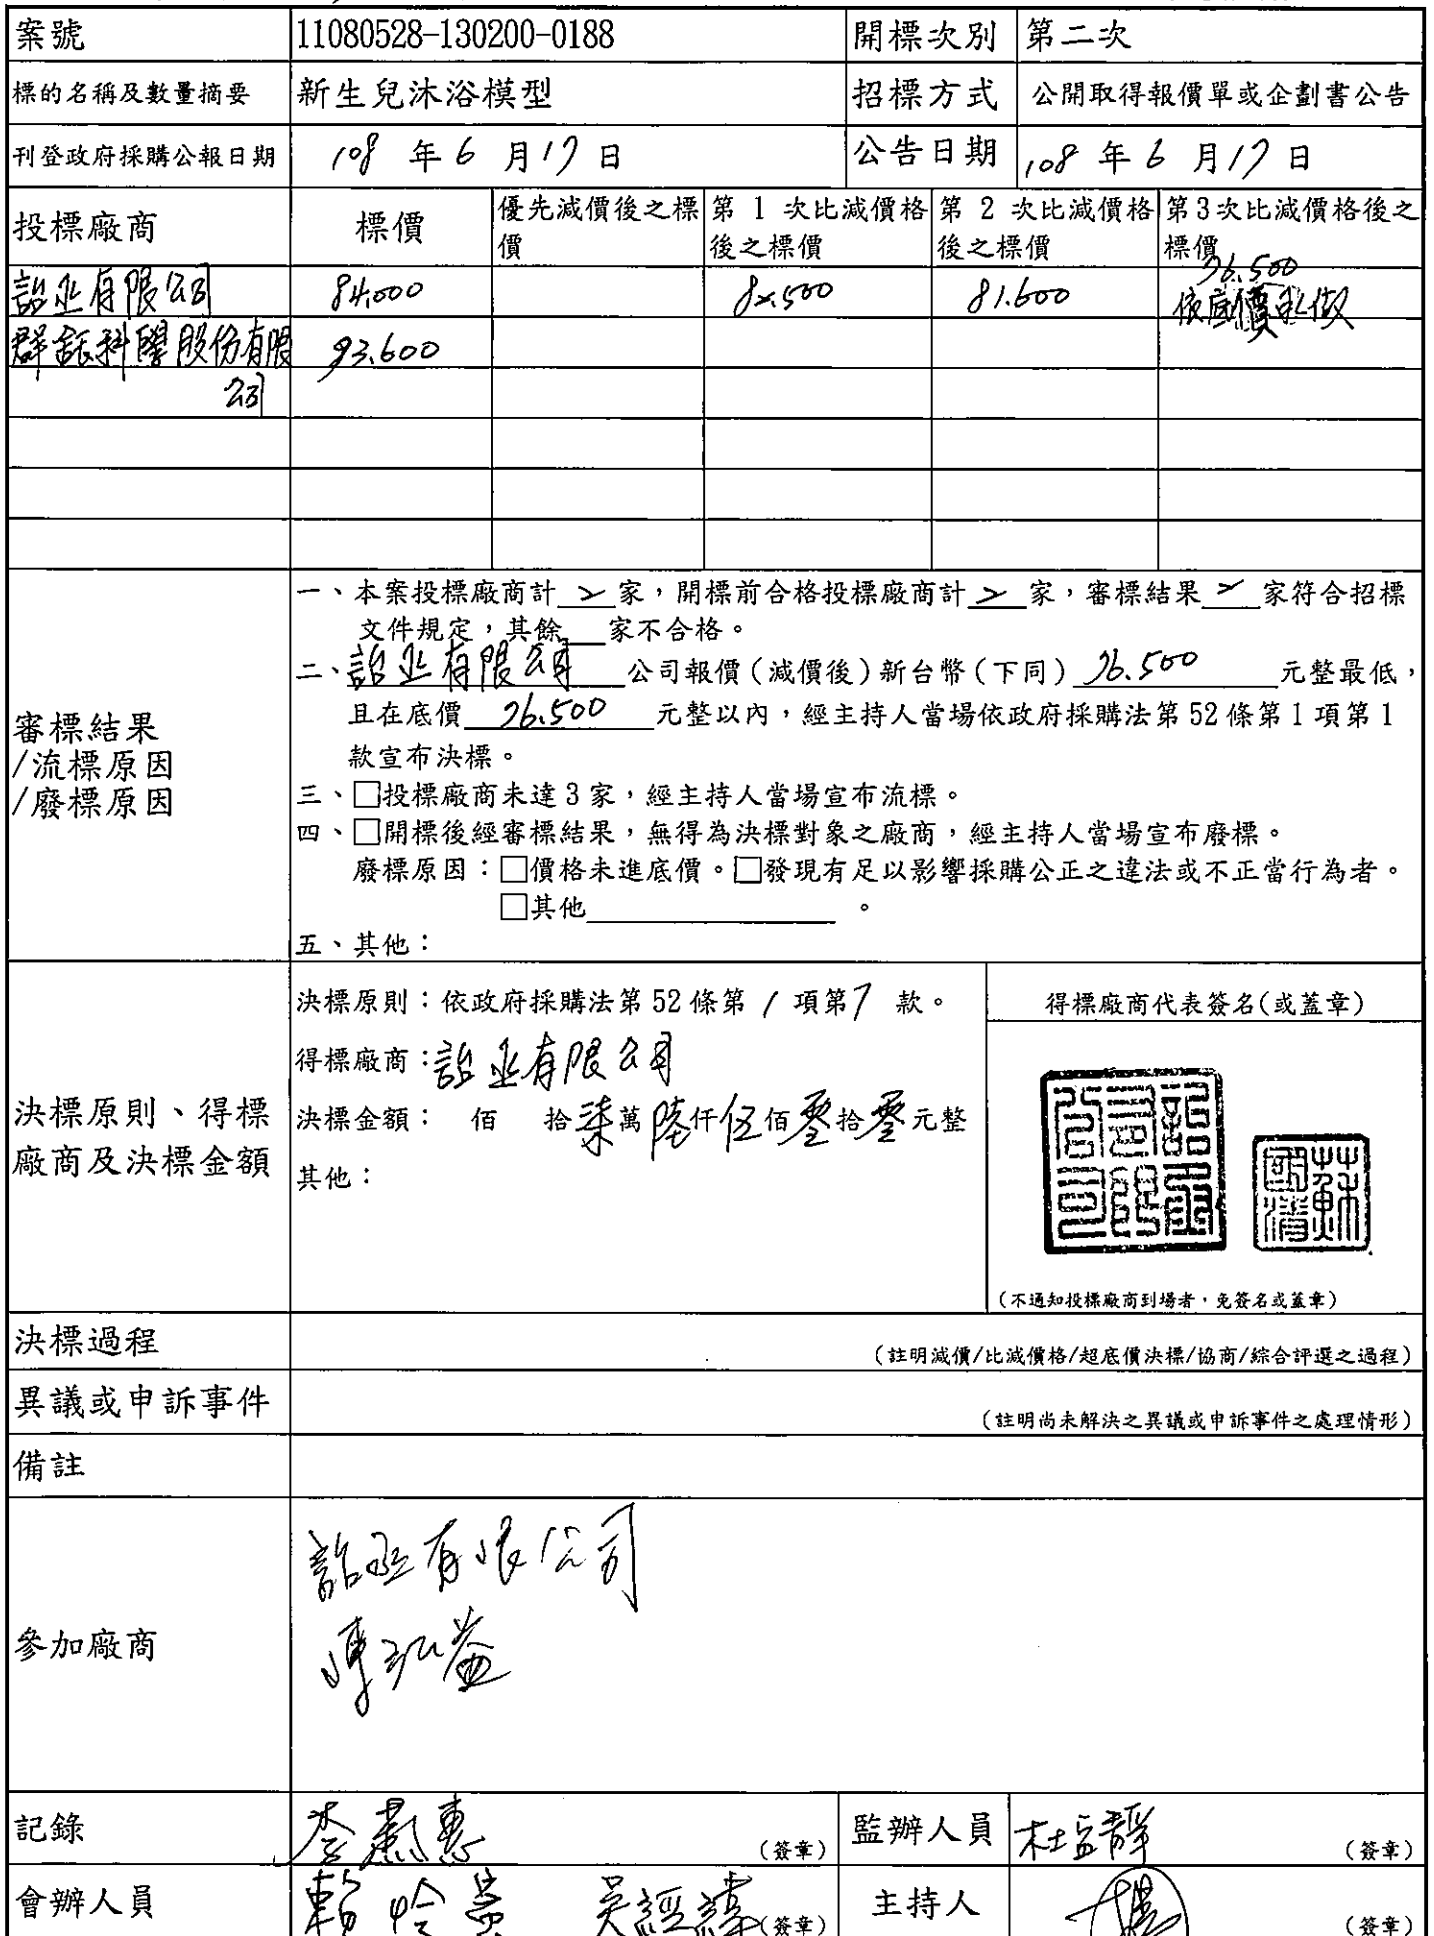 案號 11080528-130200-0188 開標次別 第二次
標的名稱及數量摘要 新生兒沐浴模型 招標方式 公開取得報價單或企劃書公告
刊登政府採購公報日期 108 年 6 月 17 日 公告日期 108 年 6 月 17 日
投標廠商 標價 優先減價後之標價 第 1 次比減價格後之標價 第 2 次比減價格後之標價 第3次比減價格後之標價
有限公司 84,000 82,500 81,600 76,500 依底價承做
科學股份有限公司 93,600
審標結果
/流標原因
/廢標原因
一、本案投標廠商計 2 家,開標前合格投標廠商計 2 家,審標結果 2 家符合招標
文件規定,其餘 家不合格。
二、 有限公司 公司報價(減價後)新台幣(下同) 76,500 元整最低,
且在底價 76,500 元整以內,經主持人當場依政府採購法第 52 條第 1 項第 1
款宣布決標。
三、□投標廠商未達 3 家,經主持人當場宣布流標。
四、□開標後經審標結果,無得為決標對象之廠商,經主持人當場宣布廢標。
廢標原因:□價格未進底價。□發現有足以影響採購公正之違法或不正當行為者。
□其他 。
五、其他:
決標原則、得標
廠商及決標金額
決標原則:依政府採購法第 52 條第 1 項第 1 款。
得標廠商: 有限公司
決標金額: 佰 拾柒萬陸仟伍佰零拾零元整
其他:
得標廠商代表簽名(或蓋章)
(不通知投標廠商到場者,免簽名或蓋章)
決標過程 (註明減價/比減價格/超底價決標/協商/綜合評選之過程)
異議或申訴事件 (註明尚未解決之異議或申訴事件之處理情形)
備註
參加廠商
有限公司
記錄 (簽章) 監辦人員 (簽章)
會辦人員 吳經緯 (簽章) 主持人 (簽章)